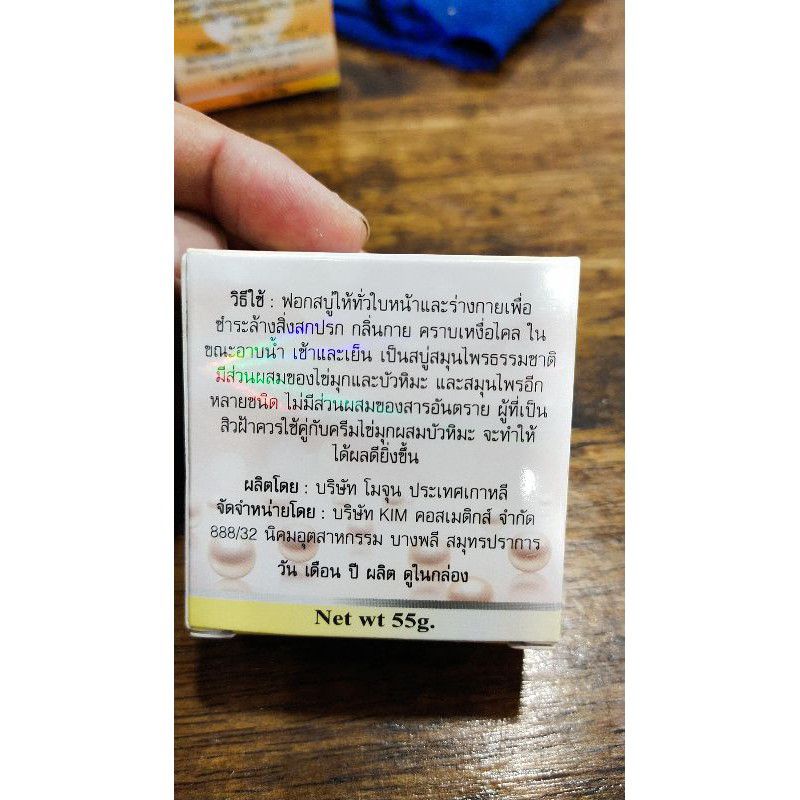 วิธีใช้ : ฟอกสบู่ให้ทั่วใบหน้าและร่างกายเพื่อ
ชำระล้างสิ่งสกปรก กลิ่นกาย คราบเหงื่อไคล ใน
ขณะอาบน้ำ เช้าและเย็น เป็นสบู่สมุนไพรธรรมชาติ
มีส่วนผสมของไข่มุกและบัวหิมะ และสมุนไพรอีก
หลายชนิด ไม่มีส่วนผสมของสารอันตราย ผู้ที่เป็น
สิวฝ้าควรใช้คู่กับครีมไข่มุกผสมบัวหิมะ จะทำให้
ได้ผลดียิ่งขึ้น
ผลิตโดย : บริษัท โมจุน ประเทศเกาหลี
จัดจำหน่ายโดย : บริษัท KIM คอสเมติกส์ จำกัด
888/32 นิคมอุตสาหกรรม บางพลี สมุทรปราการ
วัน เดือน ปี ผลิต ดูในกล่อง
Net wt 55g.